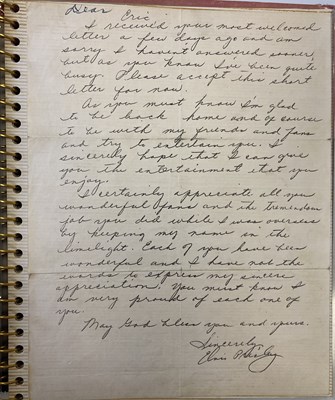 Dear Eric
I received your most welcomed
letter a few days ago and am
sorry I haven't answered sooner,
but as you know I've been quite
busy. Please accept this short
letter for now.
As you must know I'm glad
to be back home and of course
to be with my friends and fans
and try to entertain you. I
sincerely hope that I can give
you the entertainment that you
enjoy.
I certainly appreciate all you
wonderful fans and the tremendous
job you did while I was overseas
by keeping my name in the
limelight. Each of you have been
wonderful and I have not the
words to express my sincere
appreciation. You must know I
am very proud of each one of
you.
May God bless you and yours.
Sincerely,
Elvis Presley